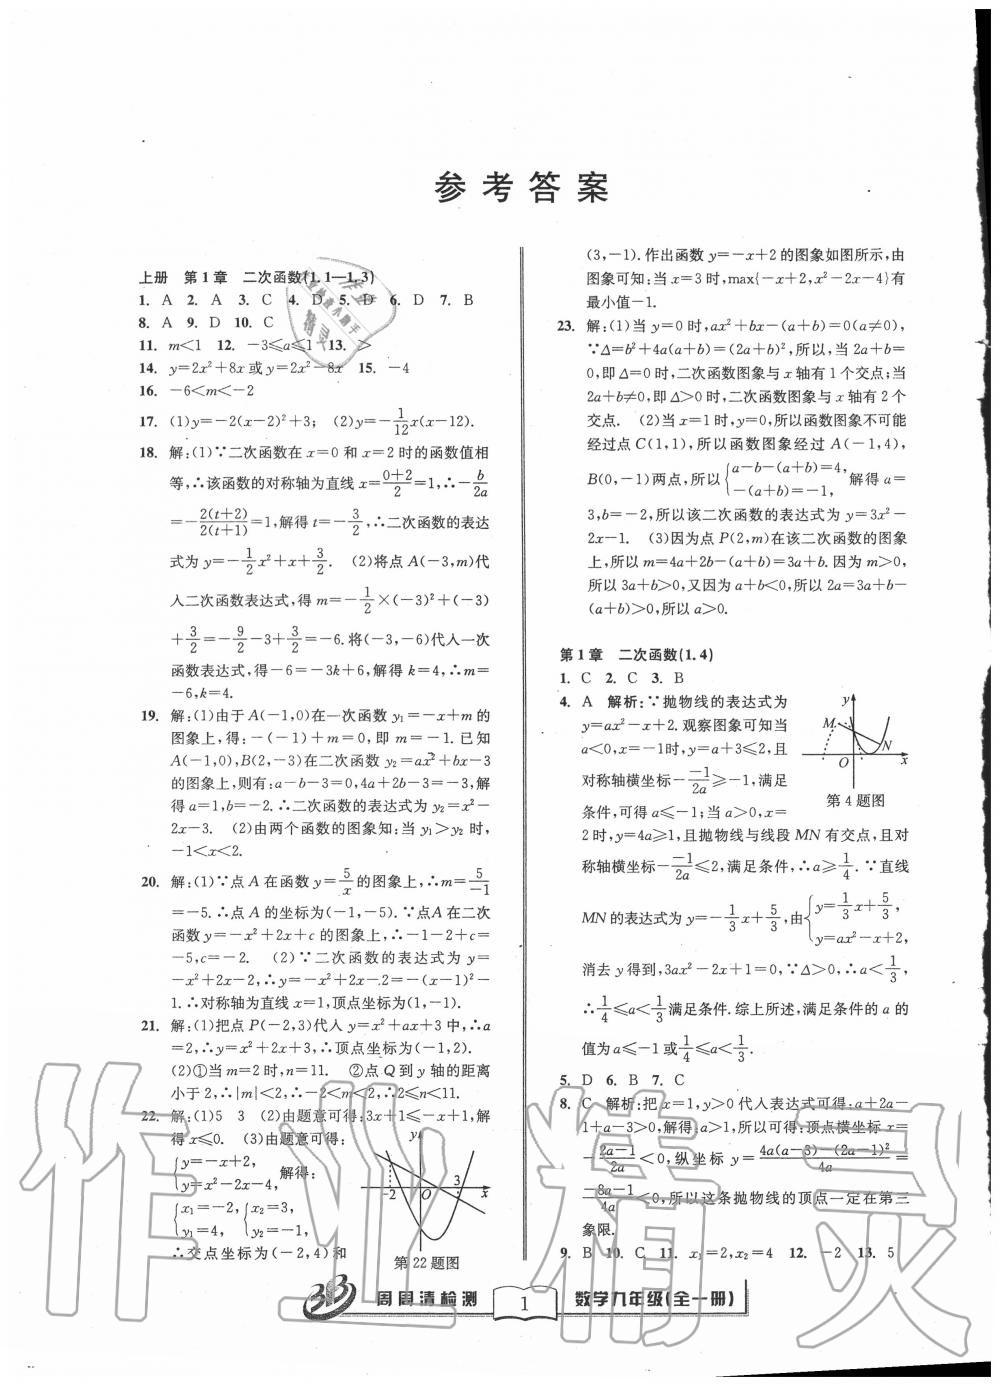 参考答案
上册　第1章　二次函数(1.1—1.3)
1. A　2. A　3. C　4. D　5. D　6. D　7. B
8. A　9. D　10. C
11. m<1　12. －3≤a≤1　13. >
14. y=2x²+8x或y=2x²－8x　15. －4
16. －6<m<－2
17. (1)y=－2(x－2)²+3;　(2)y=－1/12x(x－12).
18. 解:(1)∵二次函数在x=0和x=2时的函数值相
等,∴该函数的对称轴为直线x=(0+2)/2=1,∴－b/2a
=－2(t+2)/2(t+1)=1,解得t=－3/2,∴二次函数的表达
式为y=－1/2x²+x+3/2.　(2)将点A(－3,m)代
入二次函数表达式,得m=－1/2×(－3)²+(－3)
+3/2=－9/2－3+3/2=－6.将(－3,－6)代入一次
函数表达式,得－6=－3k+6,解得k=4,∴m=
－6,k=4.
19. 解:(1)由于A(－1,0)在一次函数y₁=－x+m的
图象上,得:－(－1)+m=0,即m=－1.已知
A(－1,0),B(2,－3)在二次函数y₂=ax²+bx－3
的图象上,则有:a－b－3=0,4a+2b－3=－3,解
得a=1,b=－2.∴二次函数的表达式为y₂=x²－
2x－3.　(2)由两个函数的图象知:当y₁>y₂时,
－1<x<2.
20. 解:(1)∵点A在函数y=5/x的图象上,∴m=5/－1
=－5.∴点A的坐标为(－1,－5).∵点A在二次
函数y=－x²+2x+c的图象上,∴－1－2+c=
－5,c=－2.　(2)∵二次函数的表达式为y=
－x²+2x－2,∴y=－x²+2x－2=－(x－1)²－
1.∴对称轴为直线x=1,顶点坐标为(1,－1).
21. 解:(1)把点P(－2,3)代入y=x²+ax+3中,∴a
=2,∴y=x²+2x+3,∴顶点坐标为(－1,2).
(2)①当m=2时,n=11.　②点Q到y轴的距离
小于2,∴|m|<2,∴－2<m<2,∴2≤n<11.
22. 解:(1)5　3　(2)由题意可得:3x+1≤－x+1,解
得x≤0.　(3)由题意可得:
{y=－x+2,
y=x²－2x－4,　解得:
{x₁=－2,　{x₂=3,
y₁=4,　y₂=－1.
∴交点坐标为(－2,4)和
y
－2　O　3　x
第22题图
(3,－1).作出函数y=－x+2的图象如图所示,由
图象可知:当x=3时,max{－x+2,x²－2x－4}有
最小值－1.
23. 解:(1)当y=0时,ax²+bx－(a+b)=0(a≠0),
∵Δ=b²+4a(a+b)=(2a+b)²,所以,当2a+b=
0,即Δ=0时,二次函数图象与x轴有1个交点;当
2a+b≠0,即Δ>0时,二次函数图象与x轴有2个
交点.　(2)当x=1时,y=0,所以函数图象不可能
经过点C(1,1),所以函数图象经过A(－1,4),
B(0,－1)两点,所以{a－b－(a+b)=4, －(a+b)=－1,解得a=
3,b=－2,所以该二次函数的表达式为y=3x²－
2x－1.　(3)因为点P(2,m)在该二次函数的图象
上,所以m=4a+2b－(a+b)=3a+b.因为m>0,
所以3a+b>0,又因为a+b<0,所以2a=3a+b－
(a+b)>0,所以a>0.
第1章　二次函数(1.4)
1. C　2. C　3. B
4. A　解析:∵抛物线的表达式为
y=ax²－x+2.观察图象可知当
a<0,x=－1时,y=a+3≤2,且
对称轴横坐标－－1/2a≥－1,满足
条件,可得a≤－1;当a>0,x=
y
M
N
O　x
第4题图
2时,y=4a≥1,且抛物线与线段MN有交点,且对
称轴横坐标－－1/2a≤2,满足条件,∴a≥1/4.∵直线
MN的表达式为y=－1/3x+5/3,由{y=－1/3x+5/3, y=ax²－x+2,
消去y得到,3ax²－2x+1=0,∵Δ>0,∴a<1/3,
∴1/4≤a<1/3满足条件.综上所述,满足条件的a的
值为a≤－1或1/4≤a<1/3.
5. D　6. B　7. C
8. C　解析:把x=1,y>0代入表达式可得:a+2a－
1+a－3>0,解得:a>1,所以可得:顶点横坐标x=
－2a－1/2a<0,纵坐标y=4a(a－3)－(2a－1)²/4a=
－8a－1/4a<0,所以这条抛物线的顶点一定在第三
象限.
9. B　10. C　11. x₁=2,x₂=4　12. －2　13. 5
周周清检测　1　数学九年级(全一册)
作业精灵